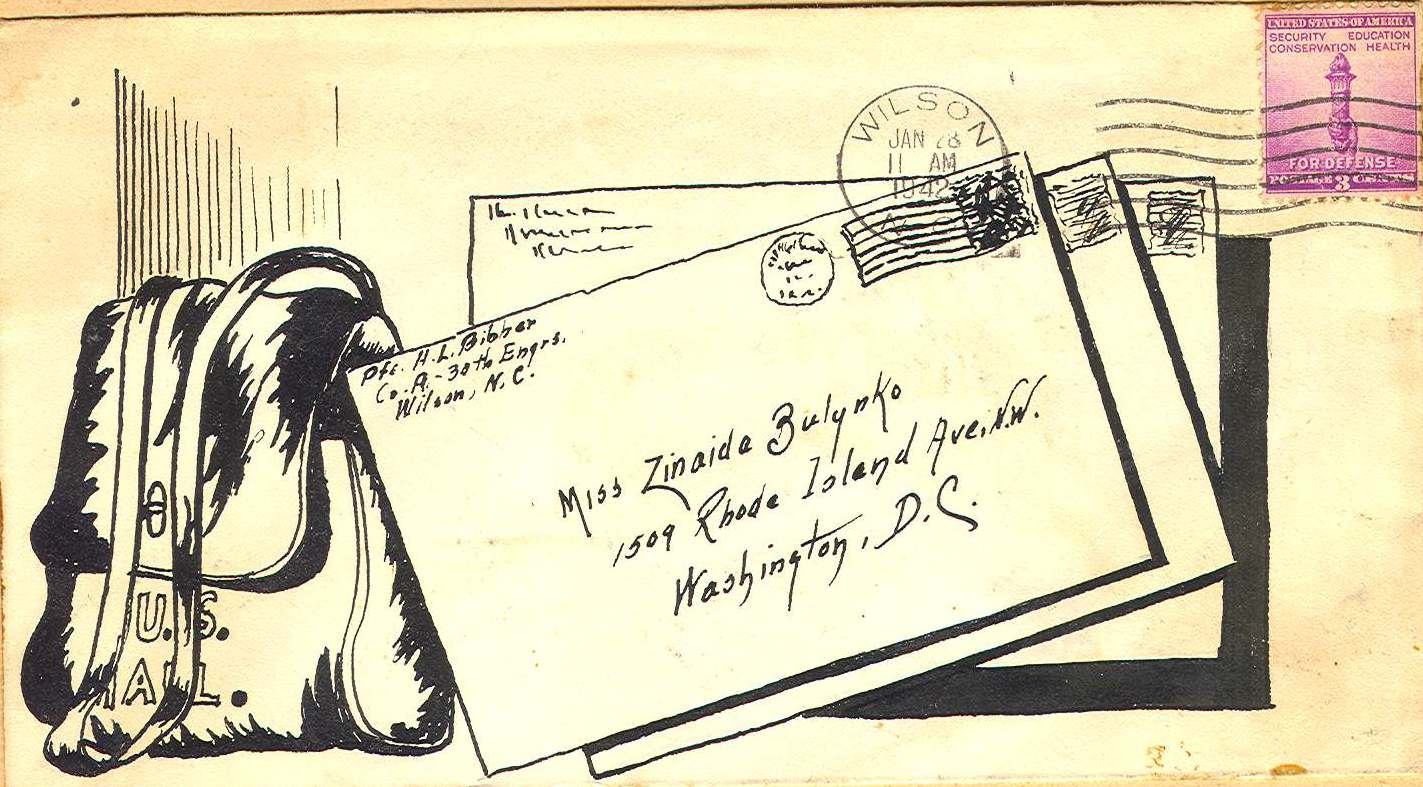 UNITED STATES OF AMERICA
SECURITY EDUCATION
CONSERVATION HEALTH
FOR DEFENSE
POSTAGE 3 CENTS
WILSON
JAN 28
11 AM
1942
Pfc. H.L. Bibber
Co. A.-30th Engrs.
Wilson, N.C.
Miss Zinaida Bulynko
1509 Rhode Island Ave. N.W.
Washington, D.C.
U.S.
MAIL.